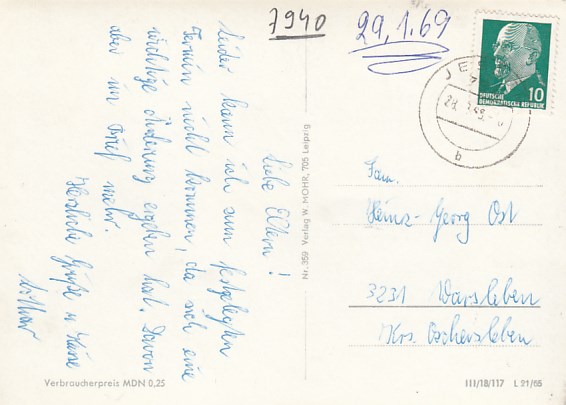 7940
29.1.69
DEUTSCHE
DEMOKRATISCHE REPUBLIK
10
b
Liebe Eltern!
Leider kann ich zum festgelegten
Termin nicht kommen, da sich eine
wichtige Änderung ergeben hat. Davon
aber im Brief mehr.
Herzliche Grüße u. Küsse
Lothar
Nr. 359 Verlag W. MOHR, 705 Leipzig
Fam.
Heinz-Georg Ost
3231 Warsleben
Krs. Oschersleben
Verbraucherpreis MDN 0,25
III/18/117 L 21/65